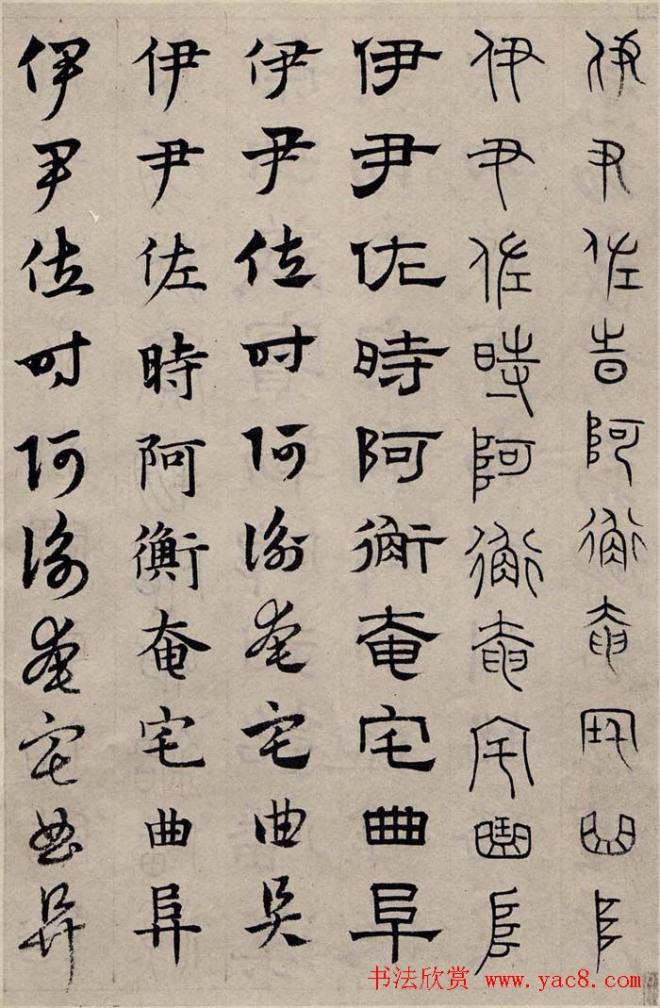 伊尹佐旹阿衡奄宅曲阜
伊尹佐時阿衡奄宅曲阜
伊尹佐時阿衡奄宅曲阜
伊尹佐時阿衡奄宅曲阜
伊尹佐時阿衡奄宅曲阜
伊尹佐時阿衡奄宅曲阜
书法欣赏 www.yac8.com